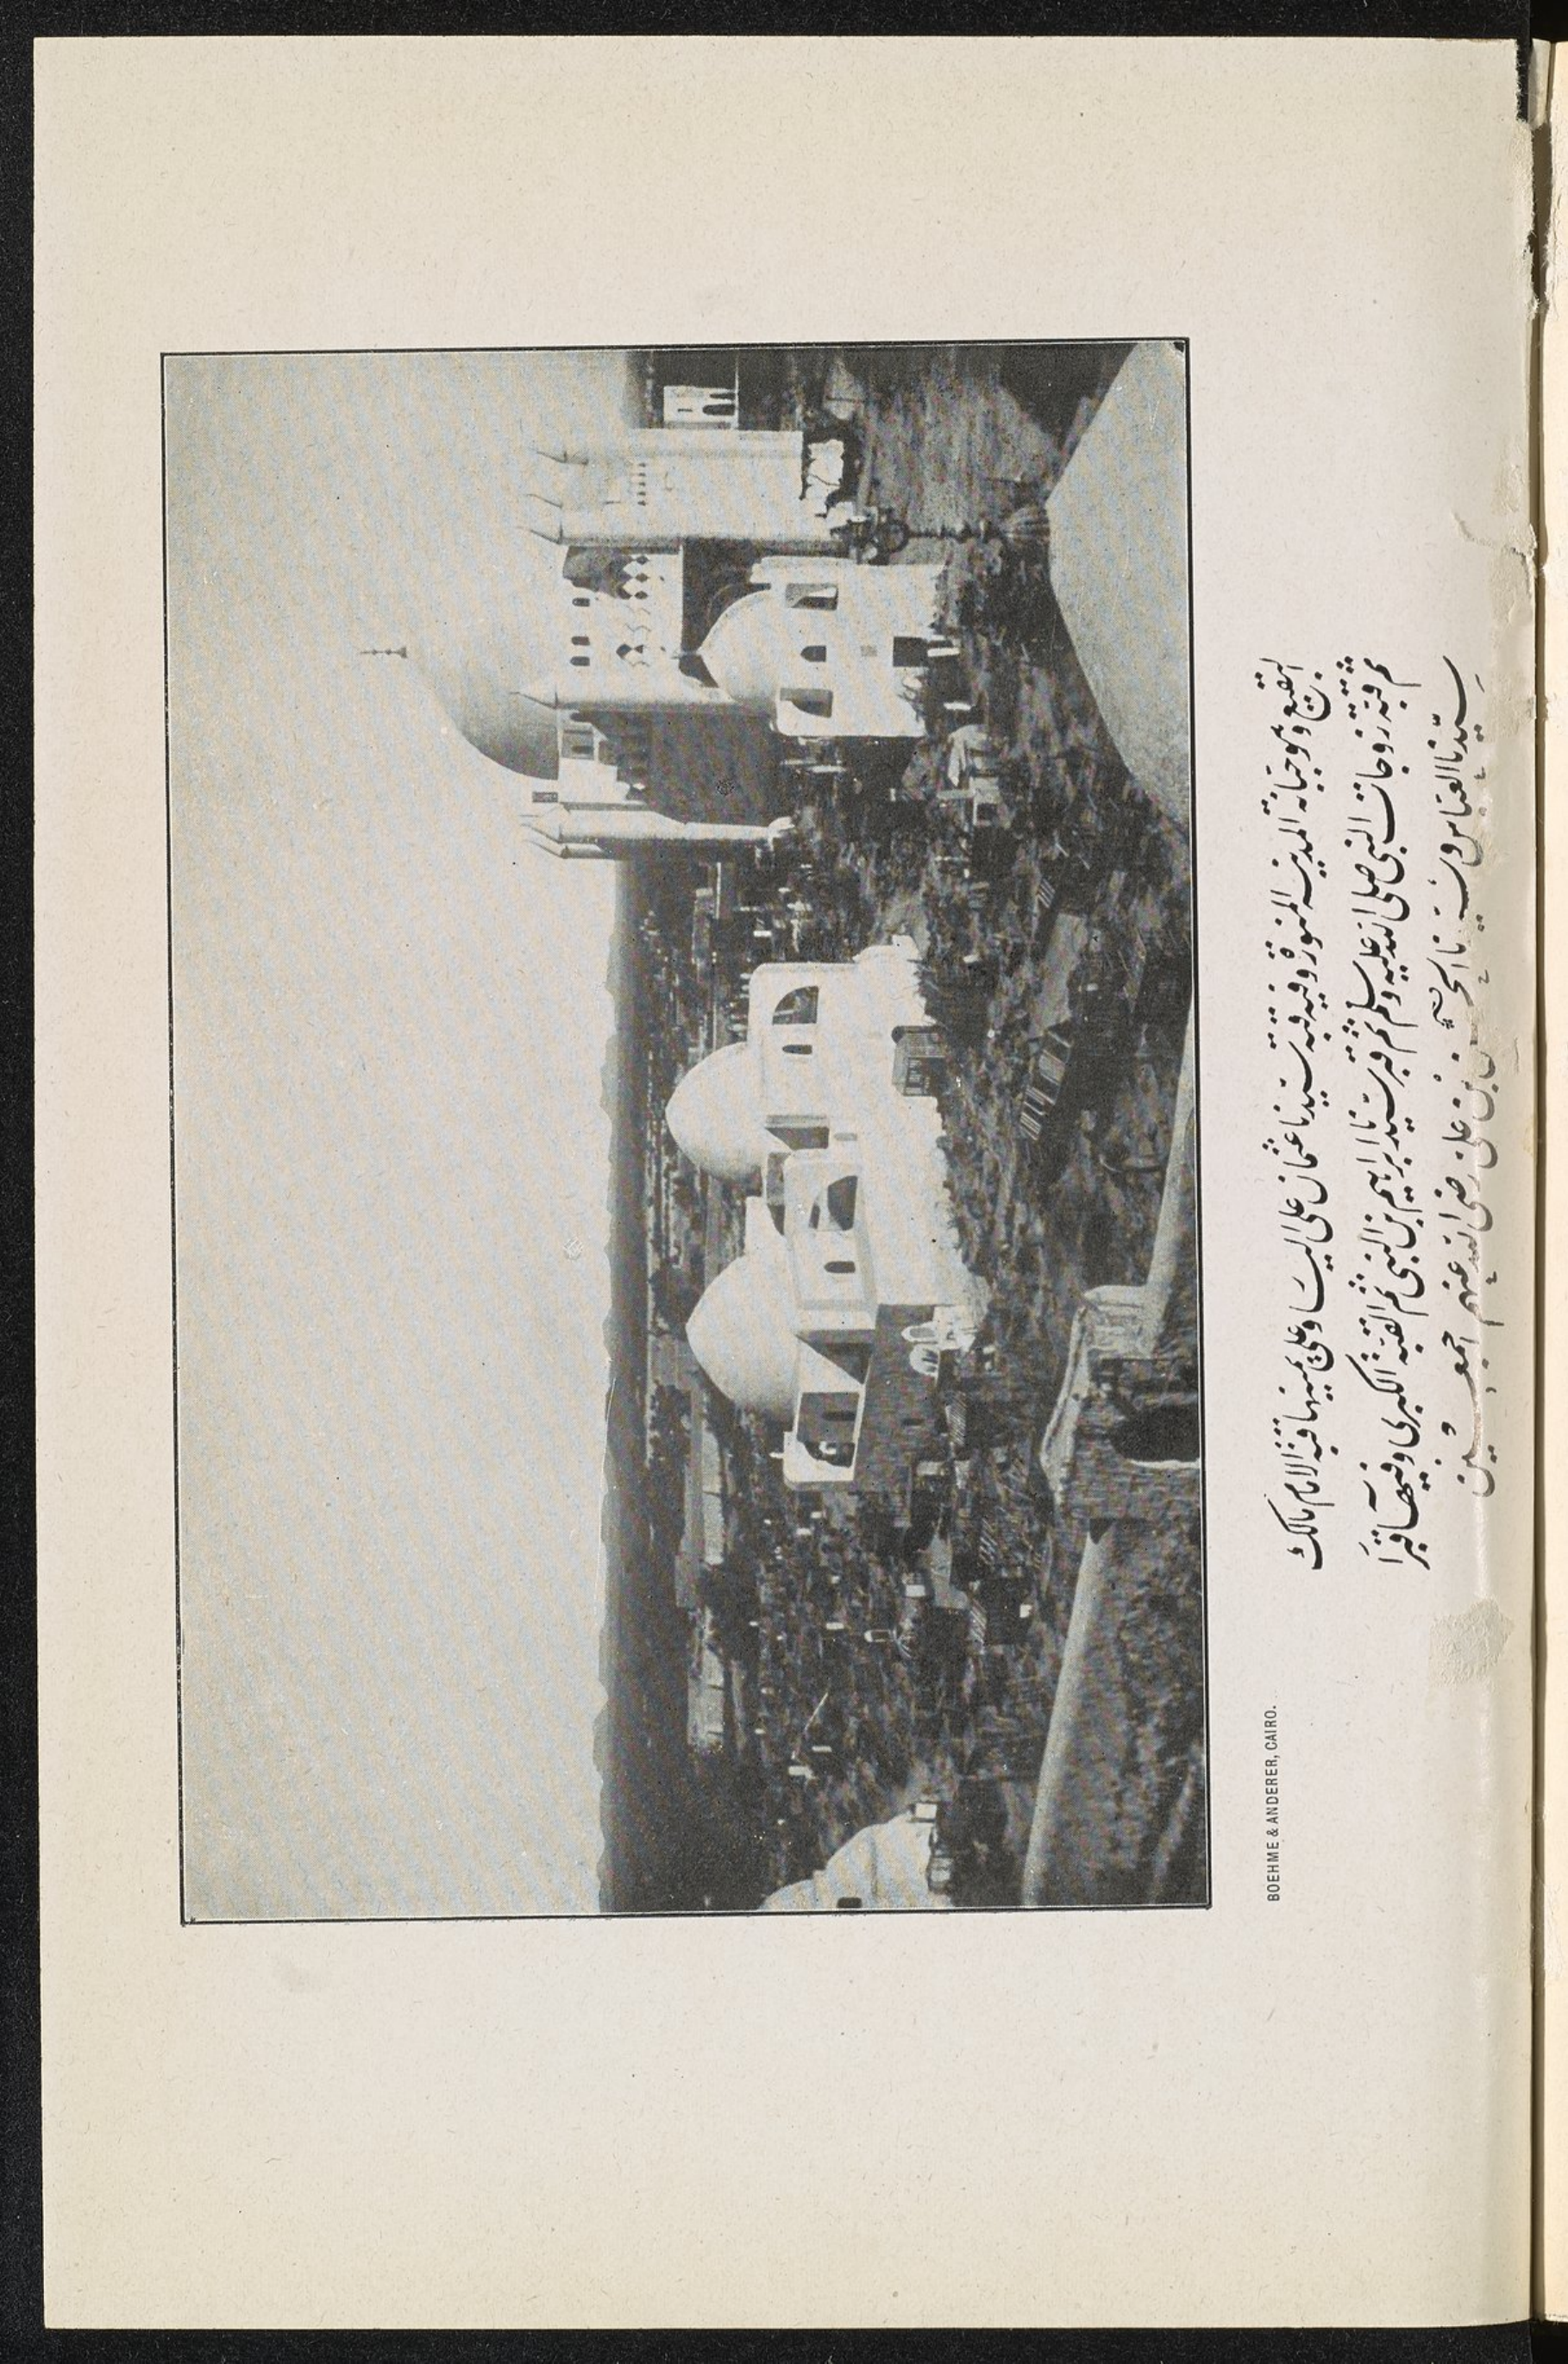 البقيع وهو جبانة المدينة المنورة وفيه قبة سيدنا عثمان على اليسار وعلى يمينها قبة الامام مالك
ثم قبة زوجات النبى صلى الله عليه وسلم ثم قبر سيدنا ابراهيم بن النبى ثم القبة الكبرى وفيها قبرا
سيدنا العباس وسيدنا الحسن بن على رضى الله عنهم اجمعين
BOEHME & ANDERER, CAIRO.